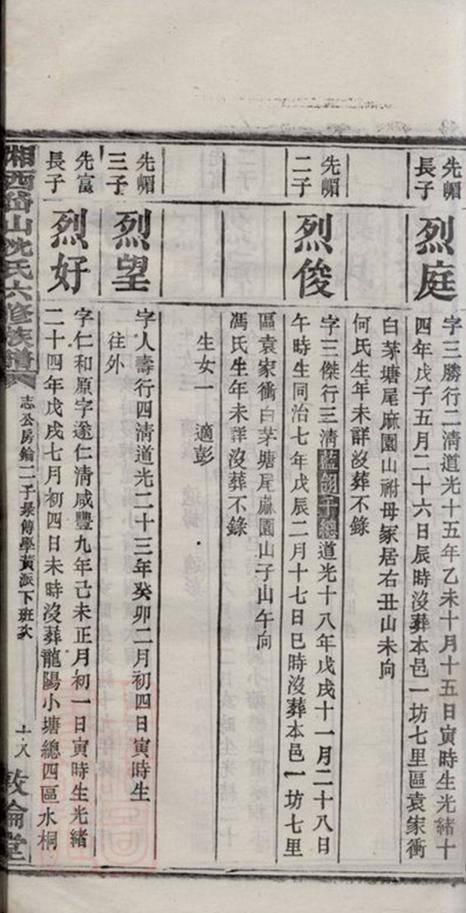 先帽
長子
烈庭
字三勝行二清道光十五年乙未十月十五日寅時生光緒十
四年戊子五月二十六日辰時沒葬本邑一坊七里區袁家衝
白茅塘尾麻園山祔母冢居右丑山未向
何氏生年未詳沒葬不錄
先帽
二子
烈俊
字三傑行三清藍翎千總道光十八年戊戌十一月二十八日
午時生同治七年戊辰二月十七日巳時沒葬本邑一坊七里
區袁家衝白茅塘尾麻園山子山午向
馮氏生年未詳沒葬不錄
生女一 適彭
先帽
三子
烈望
字人壽行四清道光二十三年癸卯二月初四日寅時生
往外
先富
長子
烈好
字仁和原字遂仁清咸豐九年己未正月初一日寅時生光緒
二十四年戊戌七月初四日未時沒葬龍陽小塘總四區水桐
湘西沈氏六修族譜
志公房 二子 傳學 派下班次
十八
敦倫堂